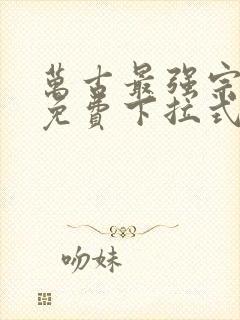 萬古最强宗
免費下拉式
吻妹